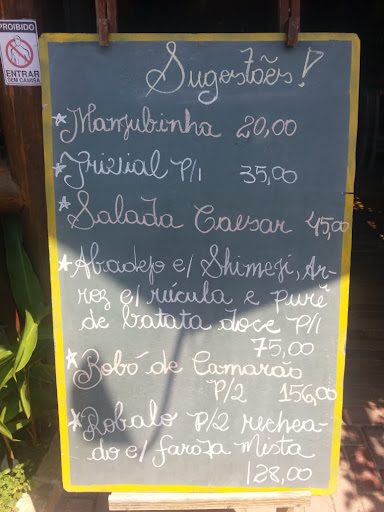 PROIBIDO
ENTRAR
SEM CAMISA
Sugestões!
Manjubinha 20,00
Trivial P/1 35,00
Salada Caesar 45,00
Abadejo c/ Shimeji, Ar-
roz c/ rúcula e purê
de batata doce P/1
75,00
Bobó de Camarão
P/2 156,00
Robalo P/2 rechea-
do c/ farofa Mista
128,00